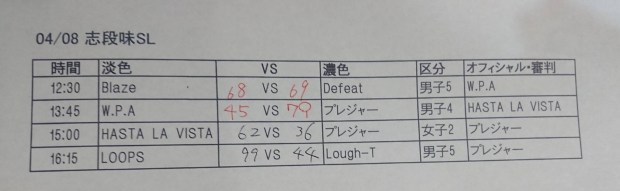 04/08 志段味SL
時間 淡色 VS 濃色 区分 オフィシャル・審判
12:30 Blaze 68 VS 69 Defeat 男子5 W.P.A
13:45 W.P.A 45 VS 79 プレジャー 男子4 HASTA LA VISTA
15:00 HASTA LA VISTA 62 VS 36 プレジャー 女子2 プレジャー
16:15 LOOPS 99 VS 44 Lough-T 男子5 プレジャー